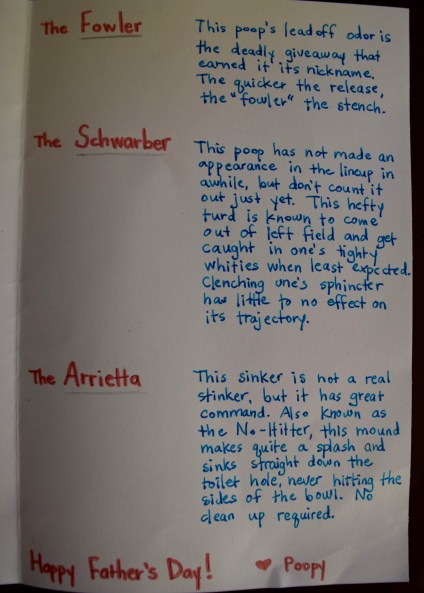 The Fowler
This poop's leadoff odor is
the deadly giveaway that
earned it its nickname.
The quicker the release,
the "fowler" the stench.
The Schwarber
This poop has not made an
appearance in the lineup in
awhile, but don't count it
out just yet. This hefty
turd is known to come
out of left field and get
caught in one's tighty
whities when least expected.
Clenching one's sphincter
has little to no effect on
its trajectory.
The Arrietta
This sinker is not a real
stinker, but it has great
command. Also known as
the No-Hitter, this mound
makes quite a splash and
sinks straight down the
toilet hole, never hitting the
sides of the bowl. No
clean up required.
Happy Father's Day! ♥ Poopy